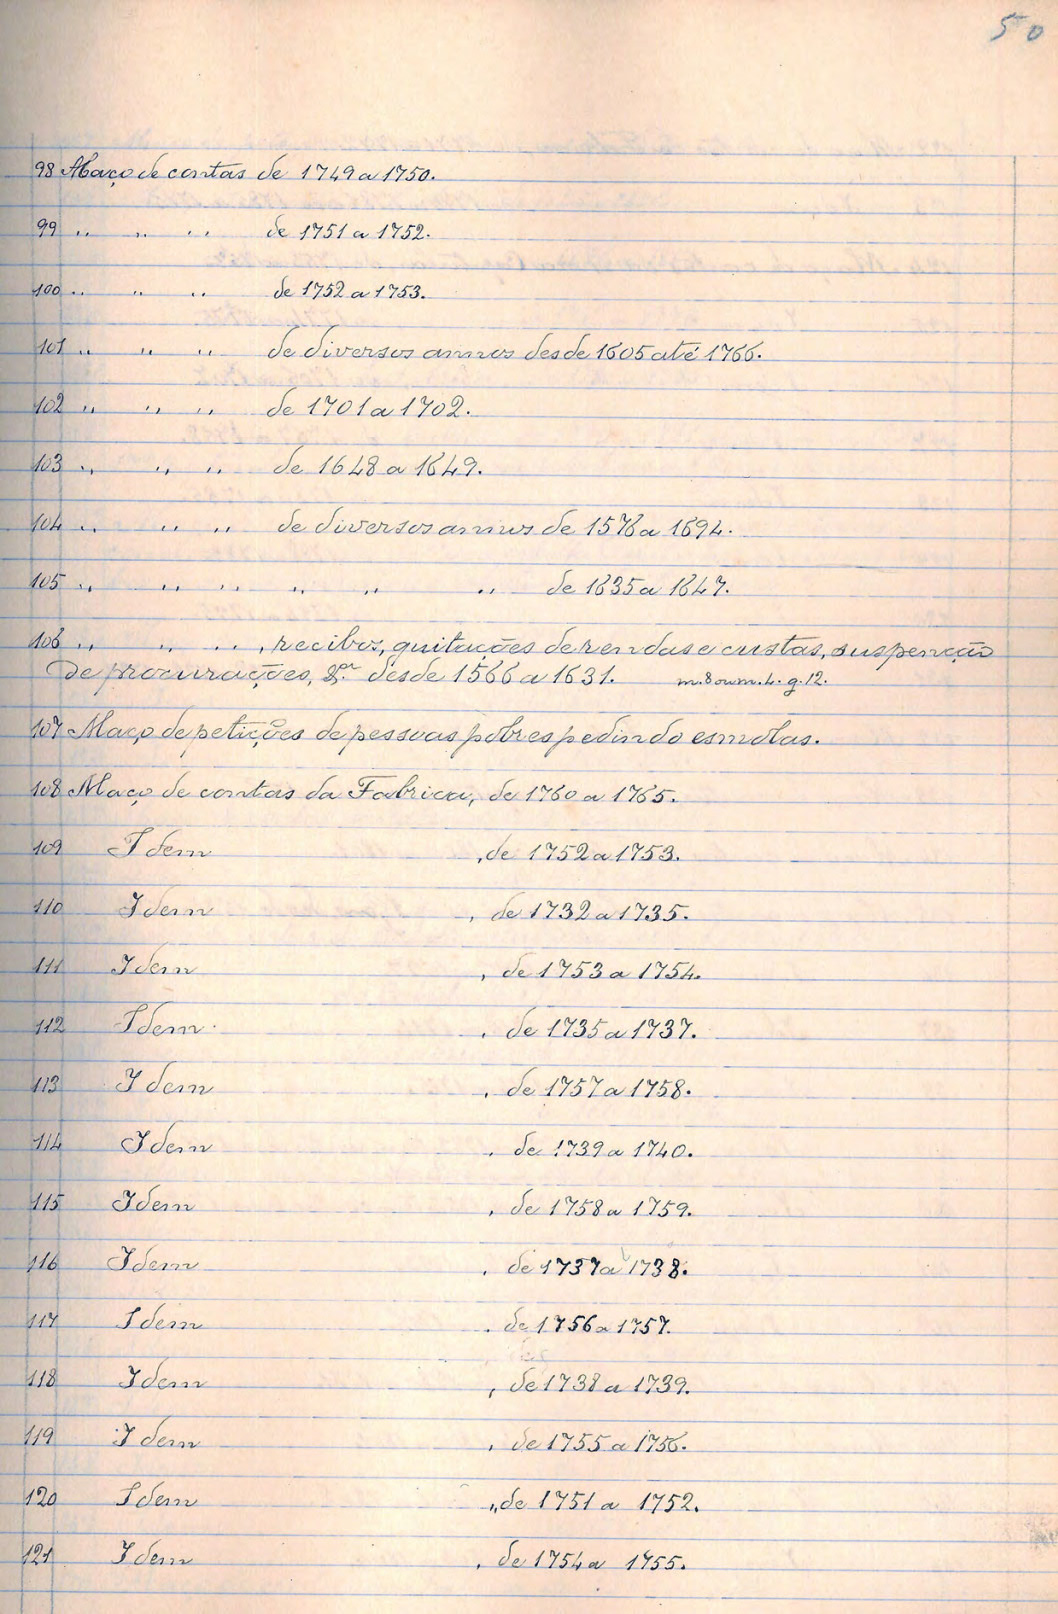 50
98 Maço de contas de 1749 a 1750.
99 " " " de 1751 a 1752.
100 " " " de 1752 a 1753.
101 " " " de diversos annos desde 1605 até 1766.
102 " " " de 1701 a 1702.
103 " " " de 1648 a 1649.
104 " " " de diversos annos de 1576 a 1694.
105 " " " " " " de 1635 a 1647.
106 " " " , recibos, quitações de rendas e custas, suspenção
de procurações, &ª. desde 1566 a 1631. m. 8 ou m. 4. g. 12.
107 Maço de petições de pessoas pobres pedindo esmolas.
108 Maço de contas da Fabrica, de 1760 a 1765.
109 Idem , de 1752 a 1753.
110 Idem , de 1732 a 1735.
111 Idem , de 1753 a 1754.
112 Idem . de 1735 a 1737.
113 Idem , de 1757 a 1758.
114 Idem , de 1739 a 1740.
115 Idem , de 1758 a 1759.
116 Idem , de 1737 a 1738.
117 Idem . de 1756 a 1757.
118 Idem , de 1738 a 1739.
119 Idem , de 1755 a 1756.
120 Idem ,, de 1751 a 1752.
121 Idem , de 1754 a 1755.